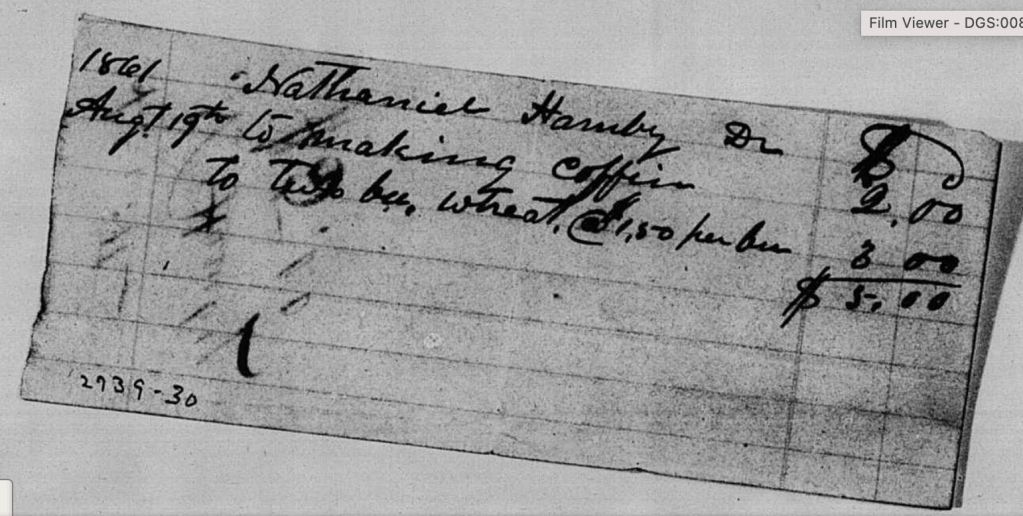 Film Viewer - DGS:008
1861 Nathaniel Hamby Dr $ D
Augt 19th to making coffin 2.00
to two bu. wheat. @ $1,50 per bu 3 00
$ 5.00
2939-30